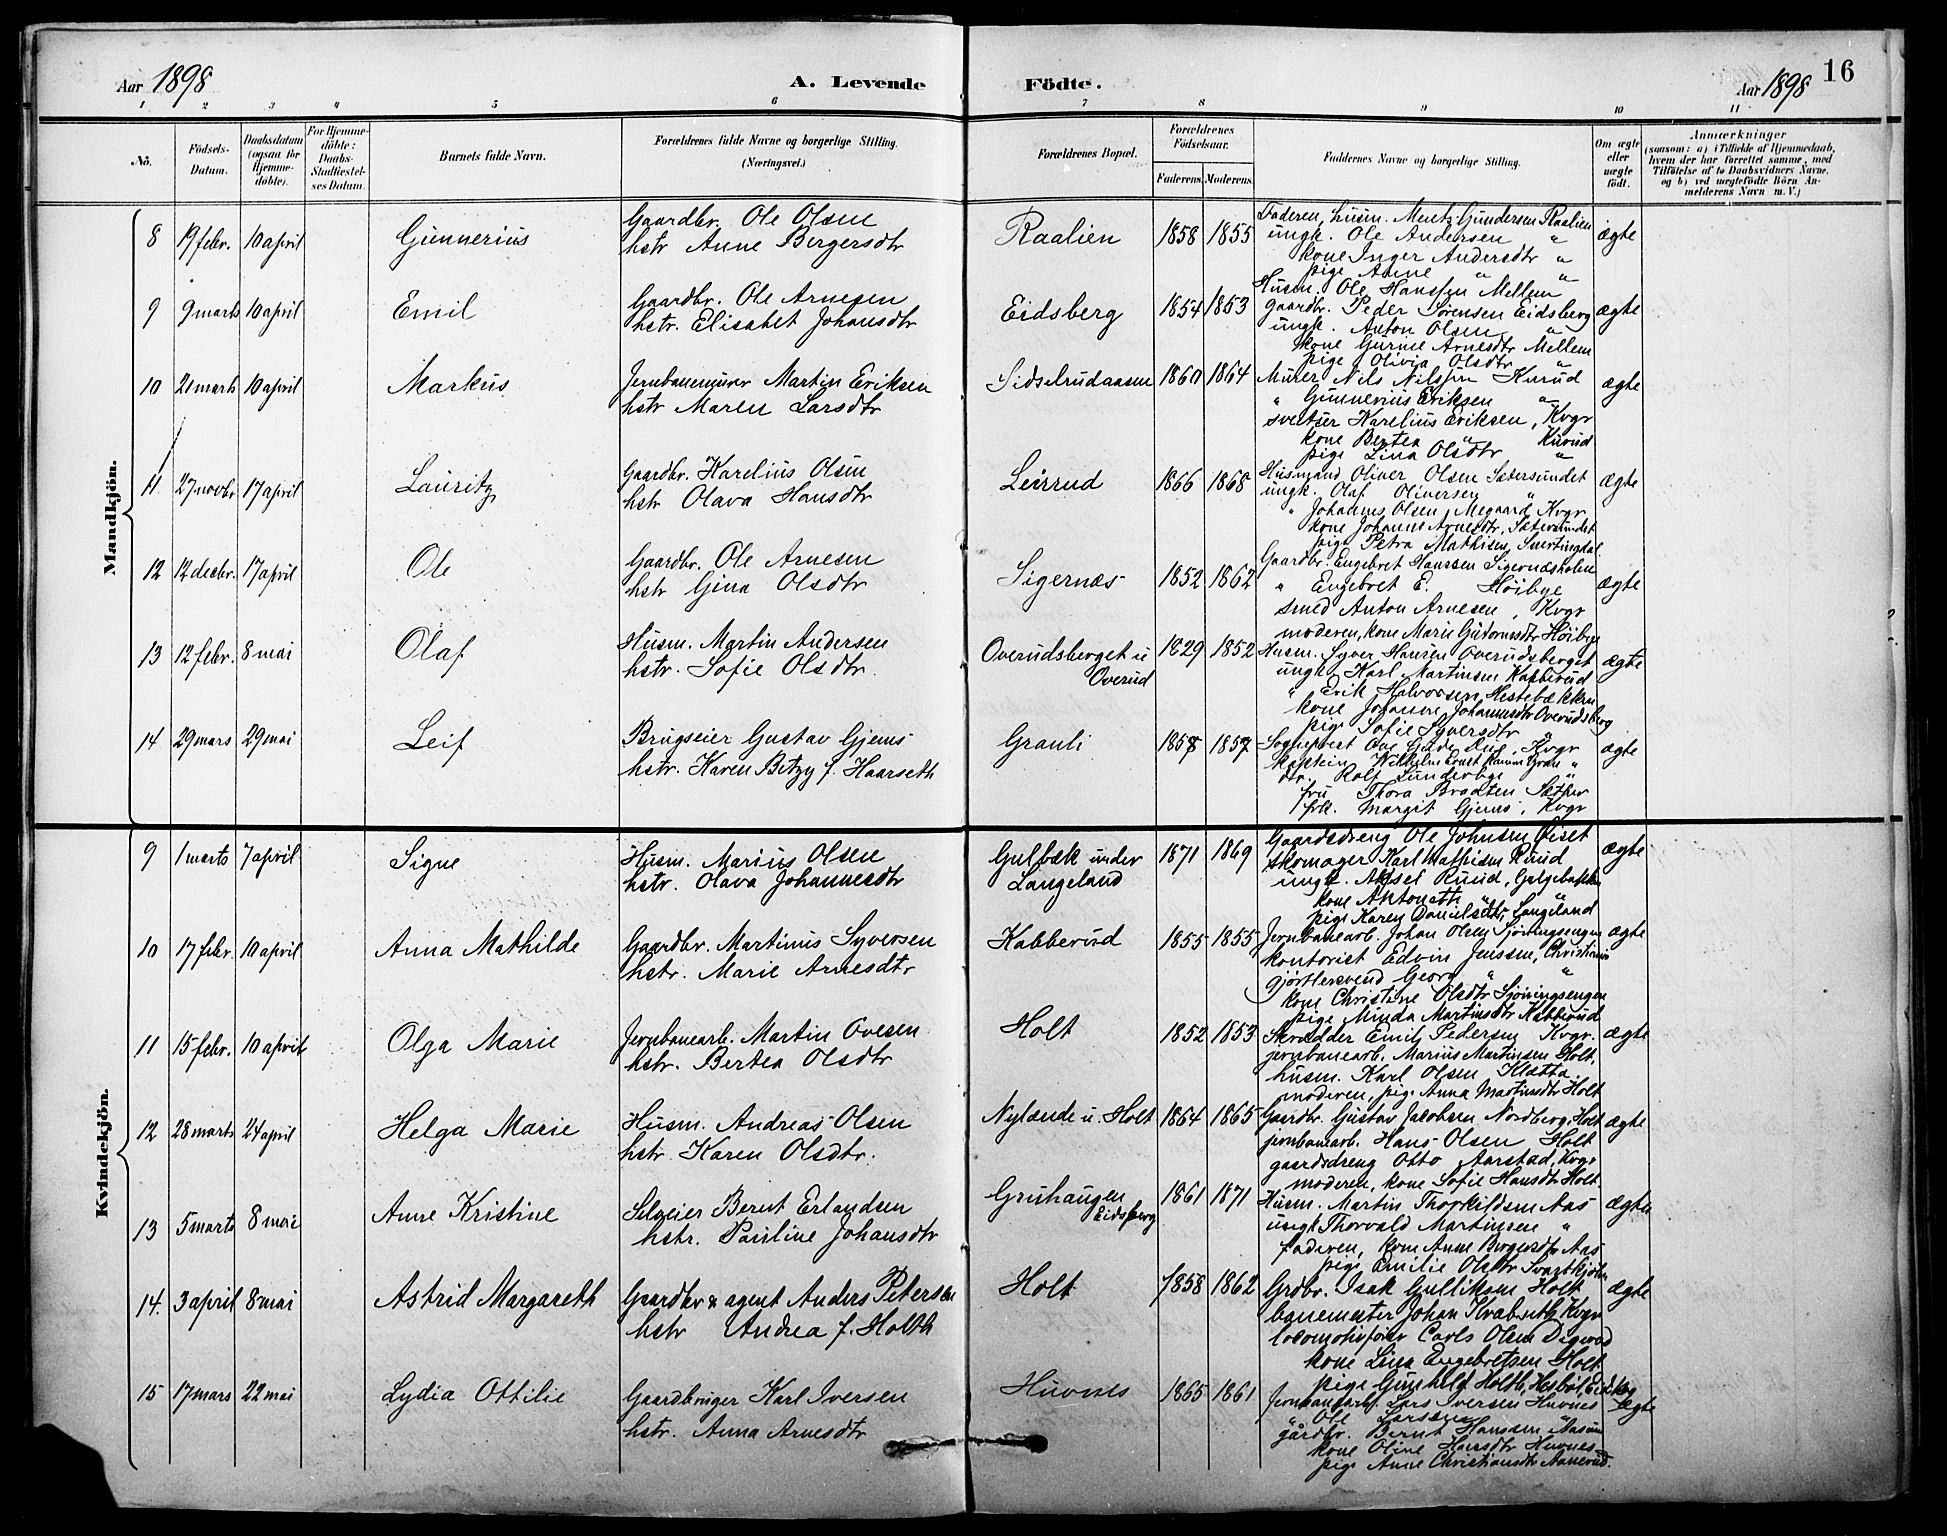 16
Aar 1898
A. Levende Födte.
Aar 1898
1 2 3 4 5 6 7 8 9 10 11
No.
Födsels-
Datum.
Daabsdatum
(ogsaa for
Hjemme-
döbte).
For Hjemme-
döbte:
Daabs-
Stadfæstel-
ses Datum.
Barnets fulde Navn.
Forældrenes fulde Navne og borgerlige Stilling.
(Næringsvei.)
Forældrenes Bopæl.
Forældrenes
Födselsaar.
Faderens. Moderens.
Faddernes Navne og borgerlige Stilling.
Om ægte
eller
uægte
födt.
Anmærkninger
(saasom: a) i Tilfælde af Hjemmedaab,
hvem der har forrettet samme, med
Tilföielse af to Daabsvidners Navne,
og b) ved uægtefödte Börn An-
melderens Navn m. V.)
Mandkjön.
8 19 febr. 10 april Gunnerius
Gaardbr. Ole Olsen
hstr Anne Bergersdtr
Raalien 1858 1855
Faderen, husm. Mentz Gundersen Raalien
ungk. Ole Andersen "
kone Inger Andersdtr "
pige Anne " "
ægte
9 9 marts 10 april Emil
Gaardbr. Ole Arnesen
hstr. Elisabet Johansdtr
Eidsberg 1854 1853
Husm. Ole Hanssen Mellem
gaardbr. Peder Sørensen Eidsberg
ungk. Anton Olsen "
kone Gurine Arnesdtr Mellem
pige Olivia Olsdtr "
ægte
10 21 marts 10 april Markus
Jernbanemurer Martin Eriksen
hstr Maren Larsdtr
Sidselrudaasen 1860 1864
Murer Nils Nilssen Kurud
" Gunnerius Eriksen "
sveitser Karelius Eriksen, Kvgr
kone Bertea " Kurud
pige Lina Olsdtr "
ægte
11. 27 novbr 17 april Lauritz
Gaardbr. Karelius Olsen
hstr Olava Hansdtr
Leirrud 1866 1868
Husmand Oliver Olsen Sætersundet
ungk. Olaf Oliversen "
" Johannes Olsen Megaard Kvgr
kone Johanne Arnesdtr, Sætersundet
pige Petra Mathisen Snertingdal
ægte
12 12 decbr. 17 april Ole
Gaardbr. Ole Arnesen
hstr Gina Olsdtr
Sigernæs 1852 1862
Gaardbr. Engebret Hanssen Sigernæsholen
" Engebret E. Høibye
smed Anton Arnesen, Kvgr
moderen, kone Marie Guttormsdtr Høibye
ægte
13 12 febr. 8 mai Olaf
Husm. Martin Andersen
hstr. Sofie Olsdtr.
Overudsberget u
Overud
1829 1852
Husm. Syver Hansen Overudsberget
ungk Karl Martinsen Kabberud
" Erik Halvorsen, Hestebækken
kone Johanne Johannesdtr Overudsberg
pige Sofie Syversdtr "
ægte
14 29 mars 29 mai Leif
Brugseier Gustav Gjems
hstr. Karen Betzy f. Haarseth
Granli 1858 1857
Sogneprest Ove Gude Due, Kvgr
kaptein Wilhelm Ernst "
dr. Rolf Lunderbye "
fru Thora Braaten Sæther
frk. Margit Gjems, Kvgr
ægte
Kvindekjön.
9 1 marts 7 april Signe
Husm. Marius Olsen
hstr. Olava Johannesdtr
Gulbæk under
Langeland
1871 1869
Gaardsdreng Ole Johnsen Øiset
skomager Karl Mathisen Ruud
ungk. Aksel Ruud, Galgebakken
kone Antonette " "
pige Karen Danielsdtr, Langeland
ægte
10 17 febr. 10 april Anna Mathilde
Gaardbr. Martinus Syversen
hstr. Marie Arnesdtr
Kabberud 1855 1855
Jernbanearb. Johan Olsen Sjøvingsengen
kontorist Edvin Jenssen, Christiania
gjørtlersvend Georg " "
kone Christine Olsdtr Sjøvingsengen
pige Minda Martinsdtr Kabberud
ægte
11 15 febr. 10 april Olga Marie
Jernbanearb. Martin Ovesen
hstr. Bertea Olsdtr
Holt 1852 1853
Skrædder Emil Pedersen Kvgr.
jernbanearb. Marius Martinsen Holt,
husm. Karl Olsen Klætta
moderen, pige Anna Martinsdtr Holt
ægte
12 28 marts 24 april Helga Marie
Husm. Andreas Olsen
hstr. Karen Olsdtr.
Nylænde u. Holt 1864 1865
Gaardbr. Gustav Jacobsen Nordberg, Holt
jernbanearb. Hans Olsen Holt
gaardsdreng Otto Aarstad, Kvgr
moderen, kone Sofie Hansdtr Holt.
ægte
13 5 marts 8 mai Anne Kristine
Selveier Bernt Erlandsen
hstr. Pauline Johansdtr
Gruhaugen
Eidsberg
1861 1871
Husm. Martin Thorkildsen Aas
ungk Thorvald Martinsen "
faderen, kone Anne Bergersdtr Aas
pige Emilie Olsdtr Svartkjøten
ægte
14. 3 april 8 mai Astrid Margareth
Gaardbr & agent Anders Petersen
hstr Andrea f. Holth
Holt 1858 1862
Grdbr. Isak Gulliksen Holt
banemester Johan Kvabseth Kvgr
locomotivfører Carls Olsen Digerud
kone Lina Engebretsen Holt
pige Gunhild Holth, Hesbøl, Eidskog
ægte
15 17 mars 22 mai Lydia Ottilie
Gaardbruger Karl Iversen
hstr. Anna Arnesdtr
Huvnes 1865 1861
Jernbanearb. Lars Iversen Huvnes
" Ole Larssen "
gårdbr. Bernt Hanssen Aasum
kone Oline Hansdtr Huvnes
pige Anne Christiansdtr Aanerud.
ægte